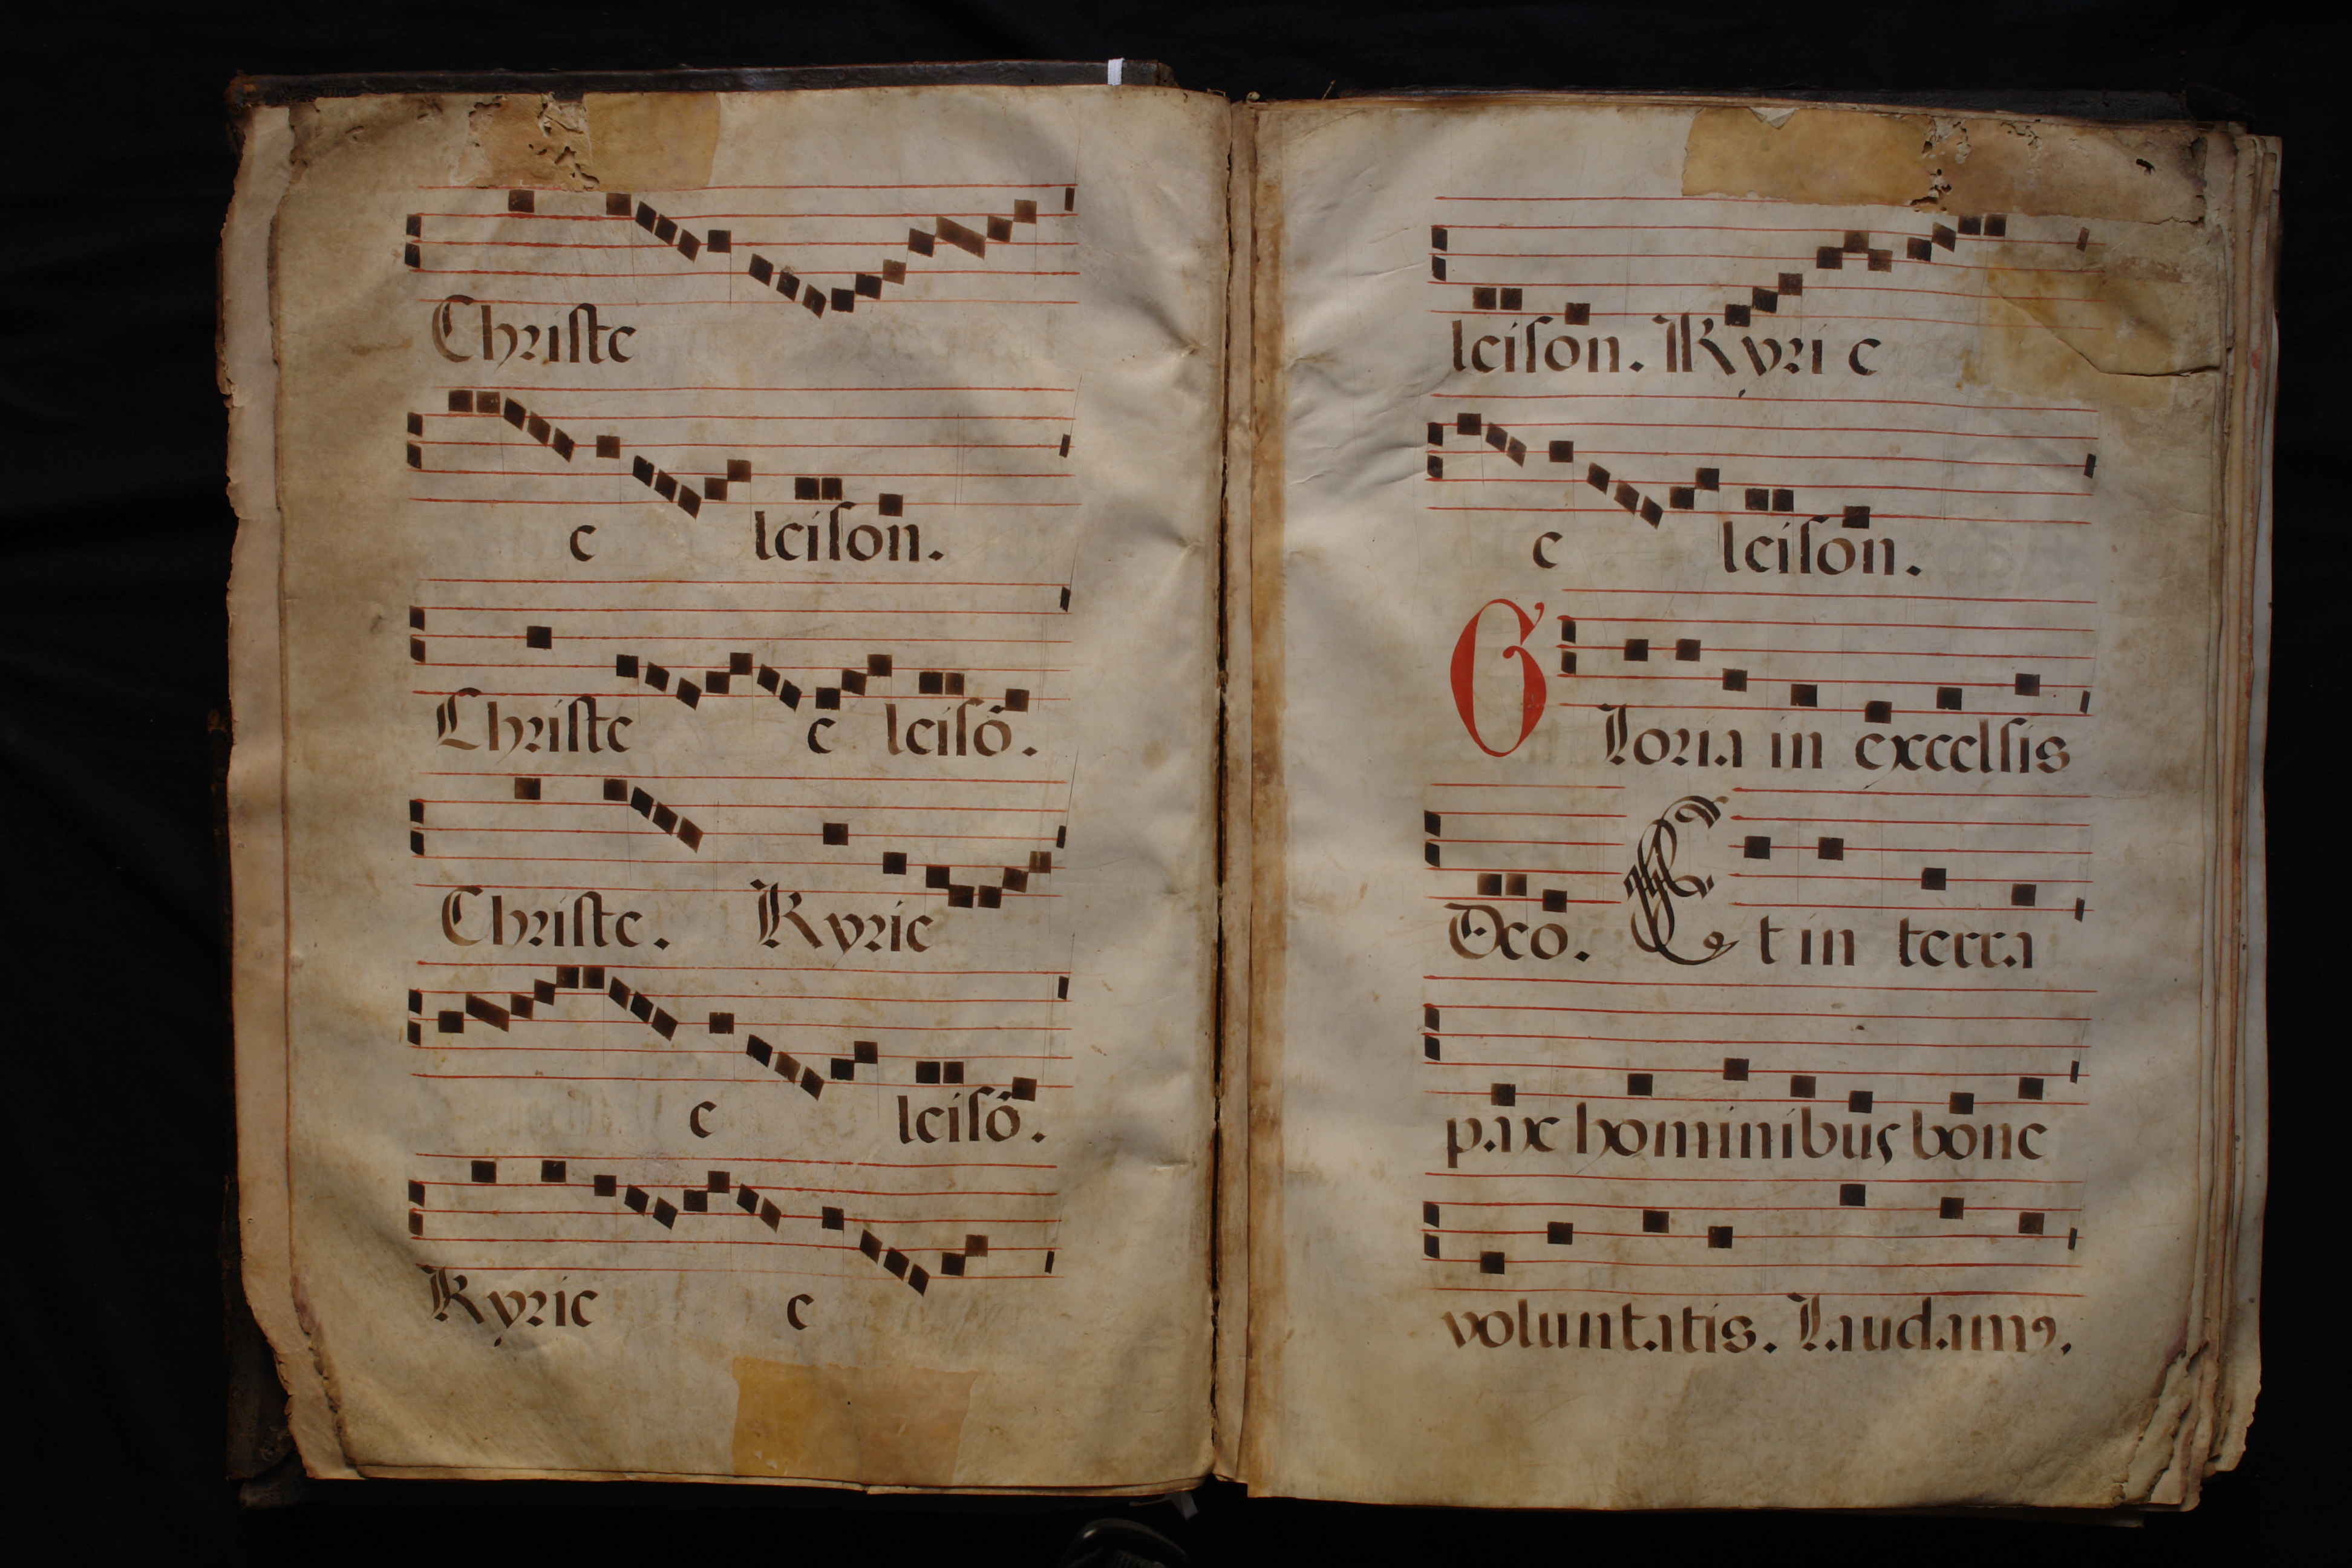 Christe
e leison.
Christe e leisō.
Christe. Kyrie
e leisō.
Kyrie e
leison. Kyri e
e leison.
Gloria in excelsis
Deo. Et in terra
pax hominibus bone
voluntatis. Laudamꝰ.